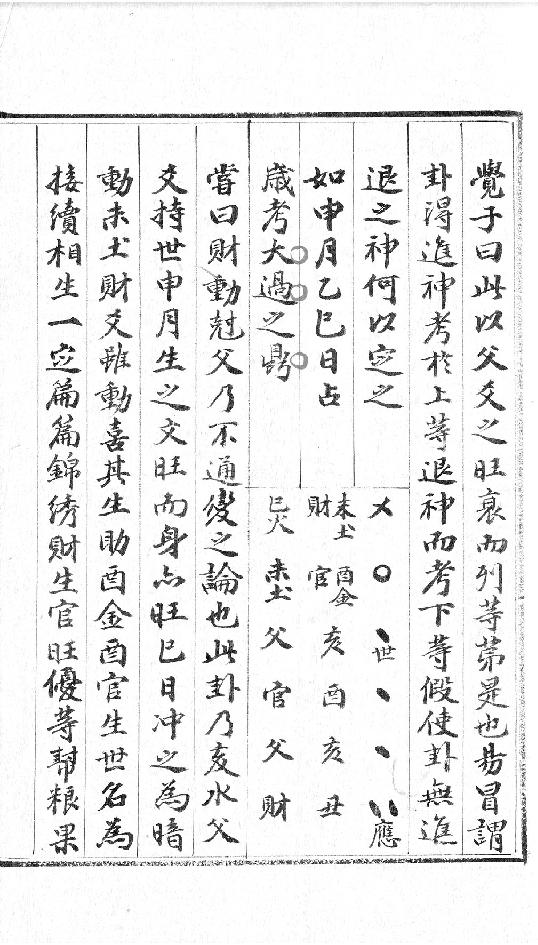 覺子曰此以父爻之旺衰而列等第是也易冒謂
卦得進神考於上等退神而考下等假使卦無進
退之神何以定之
如申月乙巳日占
歲考大過之鼎
乂 〇 丶世 丶 丶 丶丶應
未土財 酉金官 亥父 酉官 亥父 丑財
巳火 未土
嘗曰財動尅父乃不通變之論也此卦乃亥水父
爻持世申月生之文旺而身亦旺巳日冲之為暗
動未土財爻雖動喜其生助酉金酉官生世名為
接續相生一定篇篇錦绣財生官旺優等幫粮果